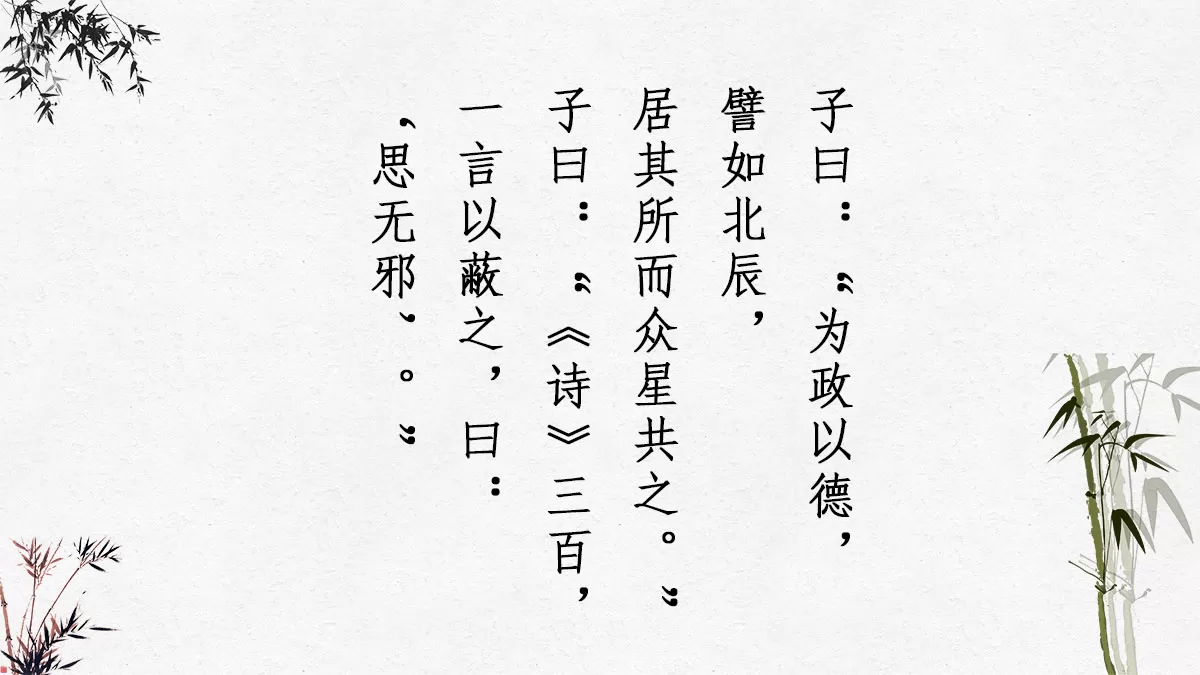 子曰：“为政以德，
譬如北辰，
居其所而众星共之。”
子曰：“《诗》三百，
一言以蔽之，曰：
‘思无邪’。”